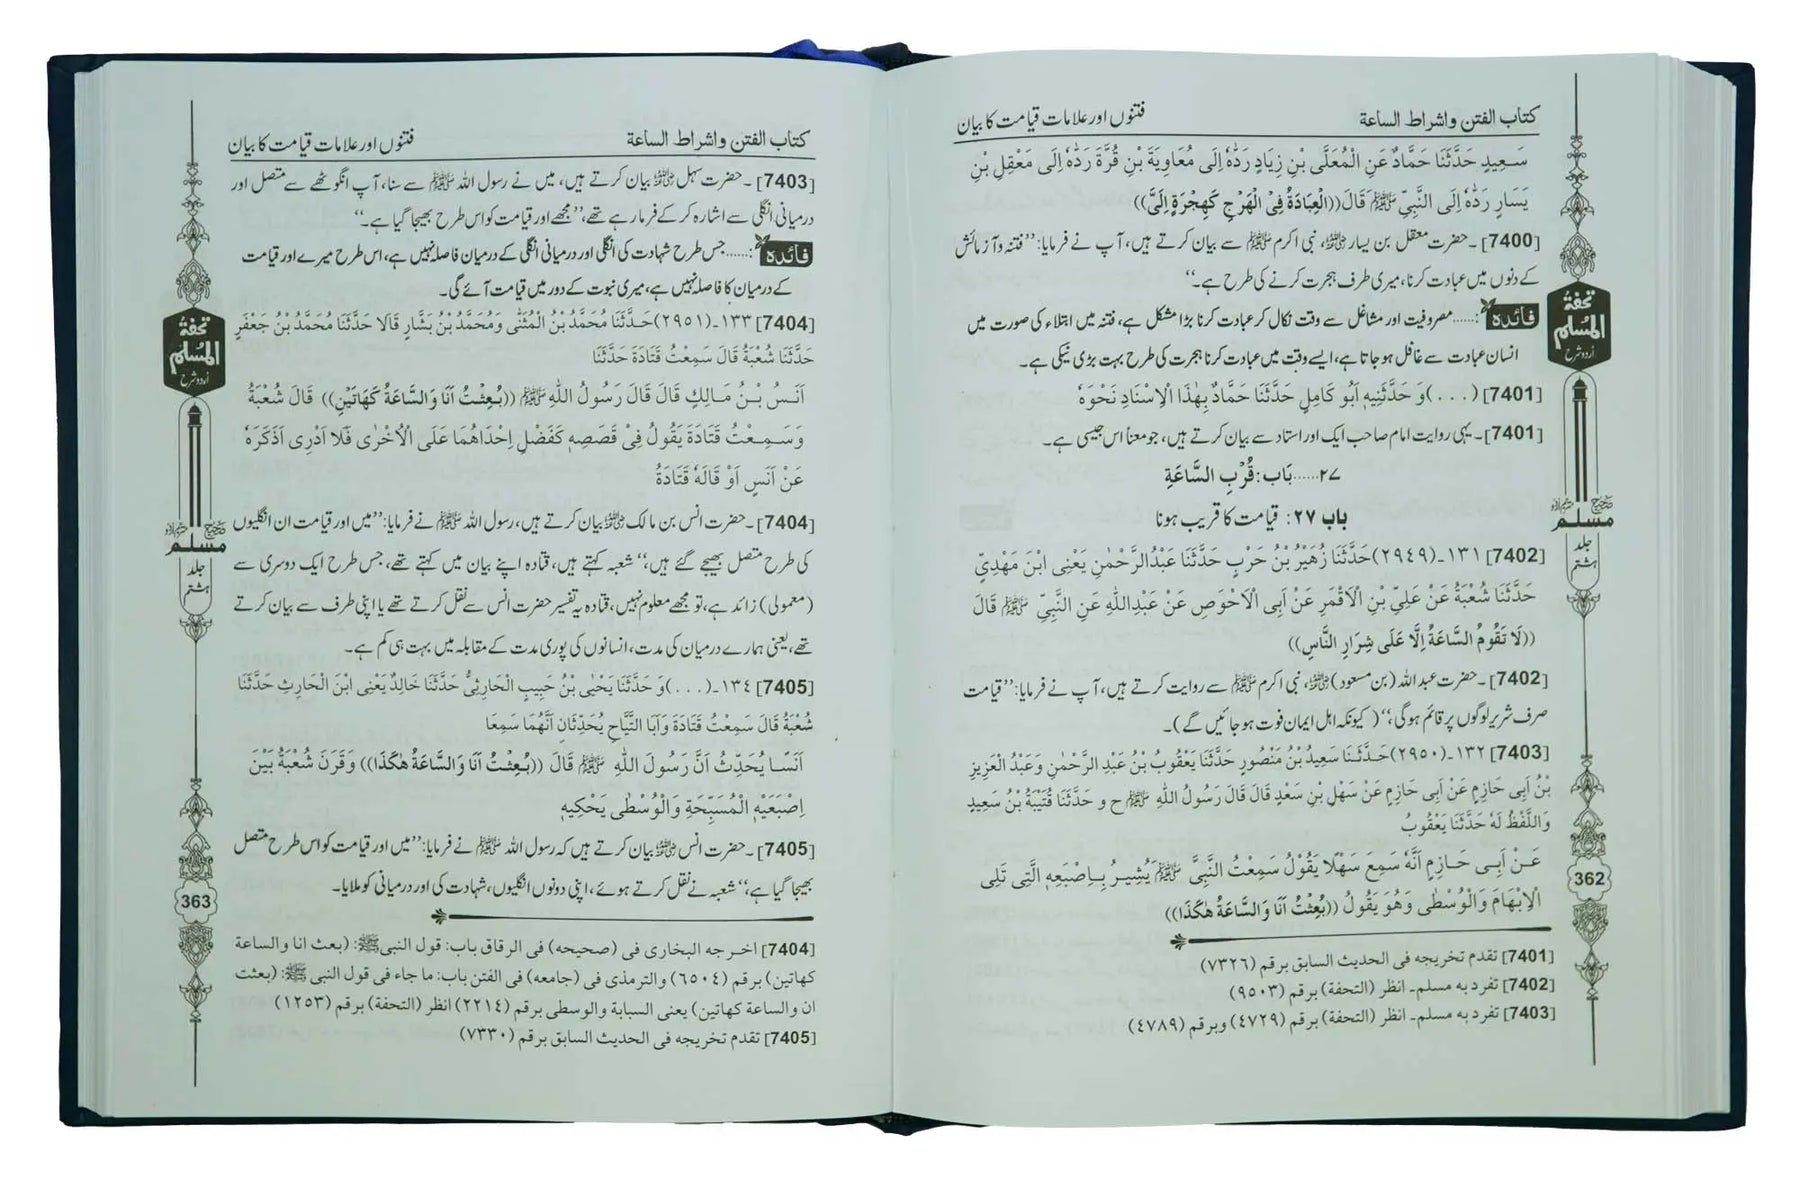 کتاب الفتن واشراط الساعة
فتنوں اور علامات قیامت کا بیان
سَعِيدٍ حَدَّثَنَا حَمَّادٌ عَنِ الْمُعَلَّى بْنِ زِيَادٍ رَدَّهُ إِلَى مُعَاوِيَةَ بْنِ قُرَّةَ رَدَّهُ إِلَى مَعْقِلِ بْنِ
يَسَارٍ رَدَّهُ إِلَى النَّبِيِّ ﷺ قَالَ ((الْعِبَادَةُ فِي الْهَرْجِ كَهِجْرَةٍ إِلَيَّ))
[7400]۔ حضرت معقل بن یسار رضی اللہ عنہ، نبی اکرم ﷺ سے بیان کرتے ہیں، آپ نے فرمایا: ’’فتنہ وآزمائش
کے دنوں میں عبادت کرنا، میری طرف ہجرت کرنے کی طرح ہے۔‘‘
فائدہ:...... مصروفیت اور مشاغل سے وقت نکال کر عبادت کرنا بڑا مشکل ہے، فتنہ میں ابتلاء کی صورت میں
انسان عبادت سے غافل ہو جاتا ہے، ایسے وقت میں عبادت کرنا ہجرت کی طرح بہت بڑی نیکی ہے۔
[7401] (...) وَحَدَّثَنِيهِ أَبُو كَامِلٍ حَدَّثَنَا حَمَّادٌ بِهٰذَا الْإِسْنَادِ نَحْوَهُ
[7401]۔ یہی روایت امام صاحب ایک اور استاد سے بیان کرتے ہیں، جو معناً اس جیسی ہے۔
۲۷......بَاب: قُرْبِ السَّاعَةِ
باب ۲۷: قیامت کا قریب ہونا
[7402] ۱۳۱۔(۲۹٤۹) حَدَّثَنَا زُهَيْرُ بْنُ حَرْبٍ حَدَّثَنَا عَبْدُالرَّحْمٰنِ يَعْنِي ابْنَ مَهْدِيٍّ
حَدَّثَنَا شُعْبَةُ عَنْ عَلِيِّ بْنِ الْأَقْمَرِ عَنْ أَبِي الْأَحْوَصِ عَنْ عَبْدِاللّٰهِ عَنِ النَّبِيِّ ﷺ قَالَ
((لَا تَقُومُ السَّاعَةُ إِلَّا عَلَى شِرَارِ النَّاسِ))
[7402]۔ حضرت عبد اللہ (بن مسعود) رضی اللہ عنہ، نبی اکرم ﷺ سے روایت کرتے ہیں، آپ نے فرمایا: ’’قیامت
صرف شریر لوگوں پر قائم ہو گی،‘‘ (کیونکہ اہل ایمان فوت ہو جائیں گے)۔
[7403] ۱۳۲۔(۲۹۵۰) حَدَّثَنَا سَعِيدُ بْنُ مَنْصُورٍ حَدَّثَنَا يَعْقُوبُ بْنُ عَبْدِ الرَّحْمٰنِ وَعَبْدُ الْعَزِيزِ
بْنُ أَبِي حَازِمٍ عَنْ أَبِي حَازِمٍ عَنْ سَهْلِ بْنِ سَعْدٍ قَالَ قَالَ رَسُولُ اللّٰهِ ﷺ ح و حَدَّثَنَا قُتَيْبَةُ بْنُ سَعِيدٍ
وَاللَّفْظُ لَهُ حَدَّثَنَا يَعْقُوبُ
عَنْ أَبِي حَازِمٍ أَنَّهُ سَمِعَ سَهْلًا يَقُولُ سَمِعْتُ النَّبِيَّ ﷺ يُشِيرُ بِإِصْبَعِهِ الَّتِي تَلِي
الْإِبْهَامَ وَالْوُسْطٰى وَهُوَ يَقُولُ ((بُعِثْتُ أَنَا وَالسَّاعَةُ هٰكَذَا))
[7401] تقدم تخريجه في الحديث السابق برقم (۷۳۲٦)
[7402] تفرد به مسلم۔ انظر (التحفة) برقم (۹۵۰۳)
[7403] تفرد به مسلم۔ انظر (التحفة) برقم (٤۷۲۹) وبرقم (٤۷۸۹)
تحفۃ
المسلم
اردو شرح
صحیح
مسلم
جلد
ہشتم
362
کتاب الفتن واشراط الساعة
فتنوں اور علامات قیامت کا بیان
[7403]۔ حضرت سہل رضی اللہ عنہ بیان کرتے ہیں، میں نے رسول اللہ ﷺ سے سنا، آپ انگوٹھے سے متصل اور
درمیانی انگلی سے اشارہ کر کے فرما رہے تھے، ’’مجھے اور قیامت کو اس طرح بھیجا گیا ہے۔‘‘
فائدہ:...... جس طرح شہادت کی انگلی اور درمیانی انگلی کے درمیان فاصلہ نہیں ہے، اس طرح میرے اور قیامت
کے درمیان کا فاصلہ نہیں ہے، میری نبوت کے دور میں قیامت آئے گی۔
[7404] ۱۳۳۔(۲۹۵۱) حَدَّثَنَا مُحَمَّدُ بْنُ الْمُثَنّٰى وَمُحَمَّدُ بْنُ بَشَّارٍ قَالَا حَدَّثَنَا مُحَمَّدُ بْنُ جَعْفَرٍ
حَدَّثَنَا شُعْبَةُ قَالَ سَمِعْتُ قَتَادَةَ حَدَّثَنَا
أَنَسُ بْنُ مَالِكٍ قَالَ قَالَ رَسُولُ اللّٰهِ ﷺ ((بُعِثْتُ أَنَا وَالسَّاعَةُ كَهَاتَيْنِ)) قَالَ شُعْبَةُ
وَسَمِعْتُ قَتَادَةَ يَقُولُ فِي قَصَصِهِ كَفَضْلِ إِحْدَاهُمَا عَلَى الْأُخْرٰى فَلَا أَدْرِي أَذَكَرَهُ
عَنْ أَنَسٍ أَوْ قَالَهُ قَتَادَةُ
[7404]۔ حضرت انس بن مالک رضی اللہ عنہ بیان کرتے ہیں، رسول اللہ ﷺ نے فرمایا: ’’میں اور قیامت ان انگلیوں
کی طرح متصل بھیجے گئے ہیں،‘‘ شعبہ کہتے ہیں، قتادہ اپنے بیان میں کہتے تھے، جس طرح ایک دوسری سے
(معمولی) زائد ہے، تو مجھے معلوم نہیں، قتادہ یہ تفسیر حضرت انس سے نقل کرتے تھے یا اپنی طرف سے بیان کرتے
تھے، یعنی ہمارے درمیان کی مدت، انسانوں کی پوری مدت کے مقابلہ میں بہت ہی کم ہے۔
[7405] ۱۳٤۔(...) وَحَدَّثَنَا يَحْيٰى بْنُ حَبِيبٍ الْحَارِثِيُّ حَدَّثَنَا خَالِدٌ يَعْنِي ابْنَ الْحَارِثِ حَدَّثَنَا
شُعْبَةُ قَالَ سَمِعْتُ قَتَادَةَ وَأَبَا التَّيَّاحِ يُحَدِّثَانِ أَنَّهُمَا سَمِعَا
أَنَسًا يُحَدِّثُ أَنَّ رَسُولَ اللّٰهِ ﷺ قَالَ ((بُعِثْتُ أَنَا وَالسَّاعَةُ هٰكَذَا)) وَقَرَنَ شُعْبَةُ بَيْنَ
إِصْبَعَيْهِ الْمُسَبِّحَةِ وَالْوُسْطٰى يَحْكِيهِ
[7405]۔ حضرت انس رضی اللہ عنہ بیان کرتے ہیں کہ رسول اللہ ﷺ نے فرمایا: ’’میں اور قیامت کو اس طرح متصل
بھیجا گیا ہے،‘‘ شعبہ نے نقل کرتے ہوئے، اپنی دونوں انگلیوں، شہادت کی اور درمیانی کو ملایا۔
[7404] اخرجه البخاري في (صحيحه) في الرقاق باب: قول النبي ﷺ: (بعثت انا والساعة
كهاتين) برقم (٦۵۰٤) والترمذي في (جامعه) في الفتن باب: ما جاء في قول النبي ﷺ: (بعثت
ان والساعة كهاتين) يعني السبابة والوسطى برقم (۲۲۱٤) انظر (التحفة) برقم (۱۲۵۳)
[7405] تقدم تخريجه في الحديث السابق برقم (۷۳۳۰)
تحفۃ
المسلم
اردو شرح
صحیح
مسلم
جلد
ہشتم
363